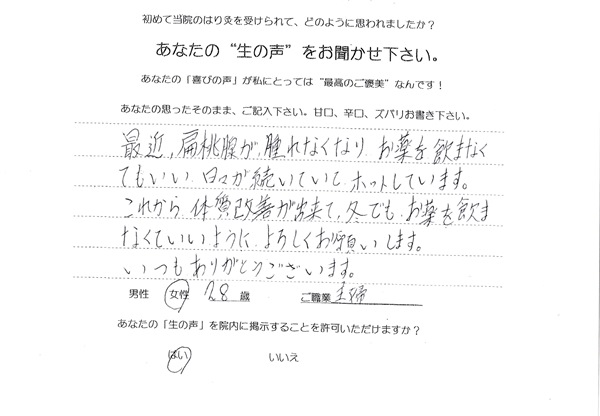 初めて当院のはり灸を受けられて、どのように思われましたか？
あなたの“生の声”をお聞かせ下さい。
あなたの「喜びの声」が私にとっては“最高のご褒美”なんです！
あなたの思ったそのまま、ご記入下さい。甘口、辛口、ズバリお書き下さい。
最近、扁桃腺が腫れなくなり お薬を飲まなく
てもいい 日々が続いていて ホットしています。
これから 体質改善が出来て、冬でも お薬を飲ま
なくていいように よろしくお願いします。
いつもありがとうございます。
男性 女性 28 歳 ご職業 主婦
あなたの「生の声」を院内に掲示することを許可いただけますか？
はい いいえ